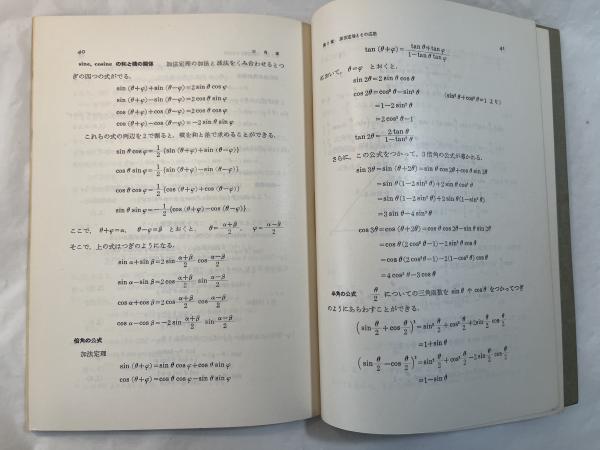 40
三角法
sine, cosine の和と積の関係　加法定理の加法と減法をくみ合わせるとつ
ぎの四つの式がでる。
sin (θ+φ)+sin (θ−φ)=2 sin θ cos φ
sin (θ+φ)−sin (θ−φ)=2 cos θ sin φ
cos (θ+φ)+cos (θ−φ)=2 cos θ cos φ
cos (θ+φ)−cos (θ−φ)=−2 sin θ sin φ
これらの式の両辺を2で割ると，積を和と差で求めることができる。
sin θ cos φ=1/2 {sin (θ+φ)+sin (θ−φ)}
cos θ sin φ=1/2 {sin (θ+φ)−sin (θ−φ)}
cos θ cos φ=1/2 {cos (θ+φ)+cos (θ−φ)}
sin θ sin φ=−1/2 {cos (θ+φ)−cos (θ−φ)}
ここで，θ+φ=α，θ−φ=β とおくと，θ=(α+β)/2，φ=(α−β)/2
そこで，上の式はつぎのようになる．
sin α+sin β=2 sin (α+β)/2 cos (α−β)/2
sin α−sin β=2 cos (α+β)/2 sin (α−β)/2
cos α+cos β=2 cos (α+β)/2 cos (α−β)/2
cos α−cos β=−2 sin (α+β)/2 sin (α−β)/2
倍角の公式
加法定理
sin (θ+φ)=sin θ cos φ+cos θ sin φ
cos (θ+φ)=cos θ cos φ−sin θ sin φ
加法定理とその応用
41
tan (θ+φ)=(tan θ+tan φ)/(1−tan θ tan φ)
において，θ=φ とおくと．
sin 2θ=2 sin θ cos θ
cos 2θ=cos² θ−sin² θ　(sin² θ+cos² θ=1 より)
=1−2 sin² θ
=2 cos² θ−1
tan 2θ=2 tan θ/(1−tan² θ)
さらに，この公式をつかって，3倍角の公式が導かれる．
sin 3θ=sin (θ+2θ)=sin θ cos 2θ+cos θ sin 2θ
=sin θ (1−2 sin² θ)+2 sin θ cos² θ
=sin θ (1−2 sin² θ)+2 sin θ (1−sin² θ)
=3 sin θ−4 sin³ θ
cos 3θ=cos (θ+2θ)=cos θ cos 2θ−sin θ sin 2θ
=cos θ (2 cos² θ−1)−2 sin² θ cos θ
=cos θ (2 cos² θ−1)−2(1−cos² θ) cos θ
=4 cos³ θ−3 cos θ
半角の公式　θ/2 についての三角函数を sin θ や cos θ をつかってつぎ
のようにあらわすことができる．
(sin θ/2 + cos θ/2)²=sin² θ/2+cos² θ/2+2 sin θ/2 cos θ/2
=1+sin θ
(sin θ/2 − cos θ/2)²=sin² θ/2+cos² θ/2−2 sin θ/2 cos θ/2
=1−sin θ